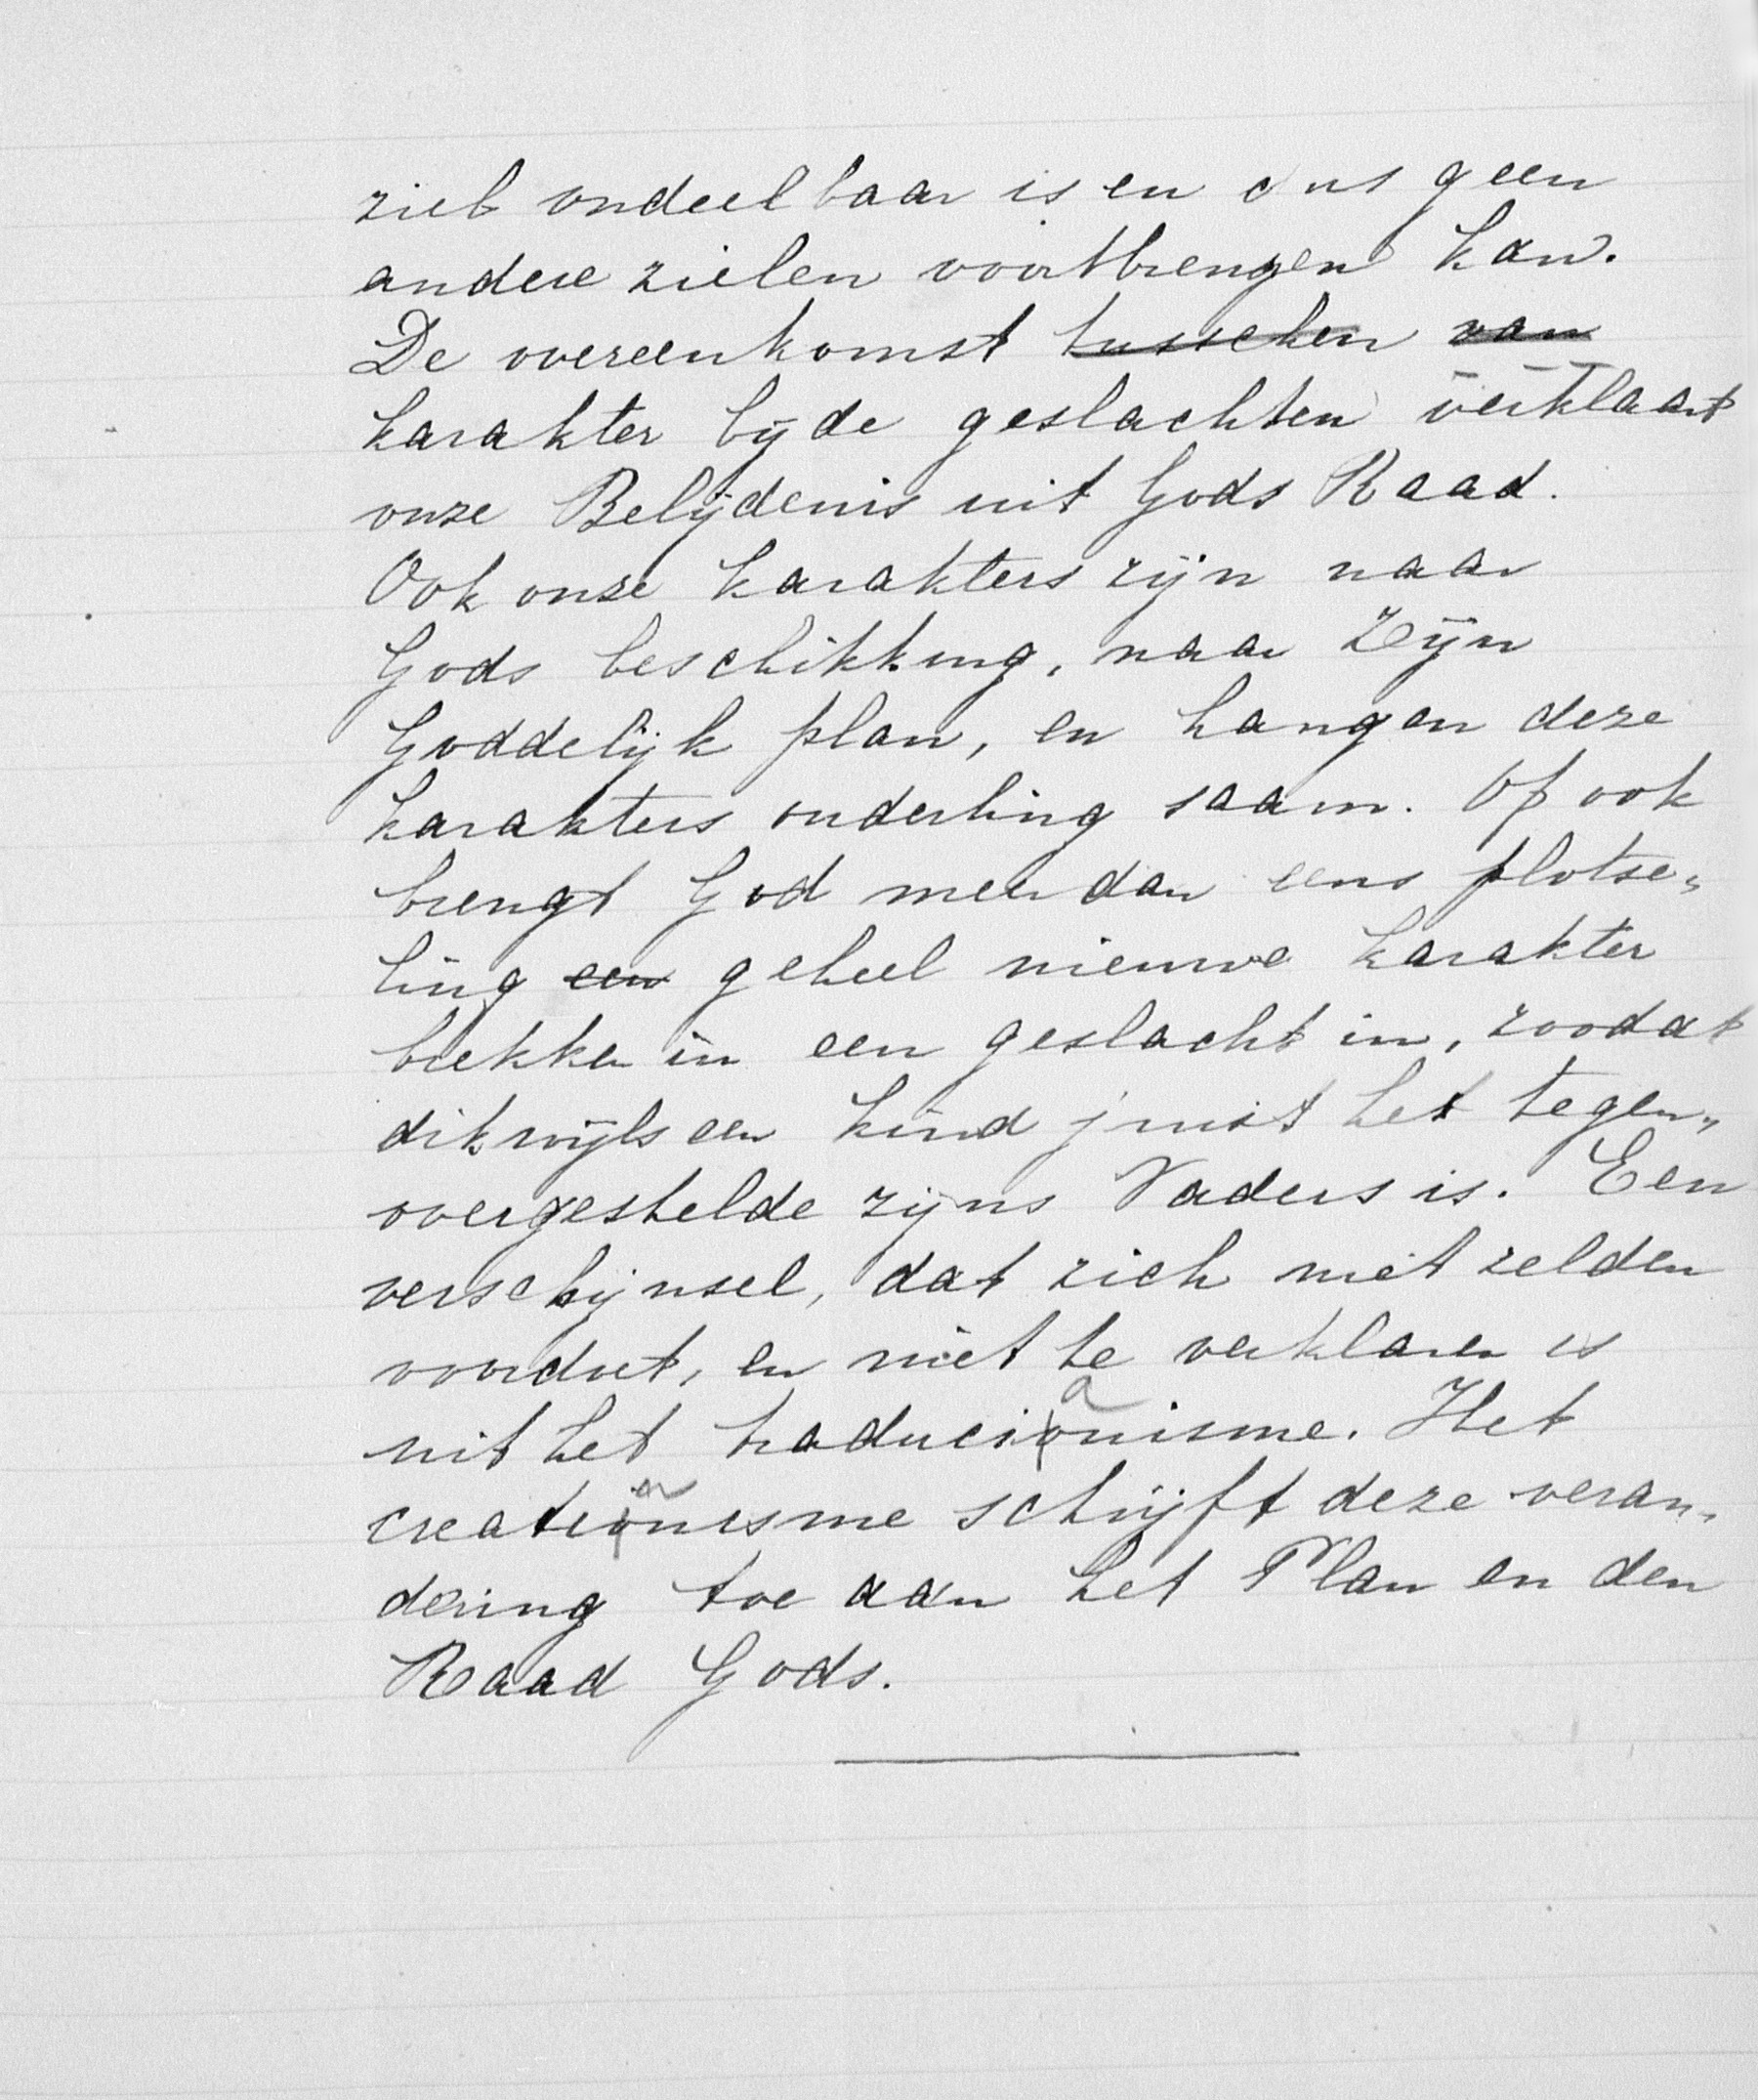 ziel ondeelbaar is en dus geen
andere zielen voortbrengen kan.
De overeenkomst tusschen van
karakter bij de geslachten verklaart
onze Belijdenis uit Gods Raad.
Ook onze karakters zijn naar
Gods beschikking, naar Zijn
Goddelijk plan, en hangen deze
karakters onderling saam. Of ook
brengt God meer dan eens plotse„
ling een geheel nieuwe karakter
trekken in een geslacht in, zoodat
dikwijls een kind juist het tegen„
overgestelde zijns Vaders is. Een
verschijnsel, dat zich niet zelden
voordoet, en niet te verklaren is
uit het traducianisme. Het
creatianisme schrijft deze veran„
dering toe aan het Plan en den
Raad Gods.